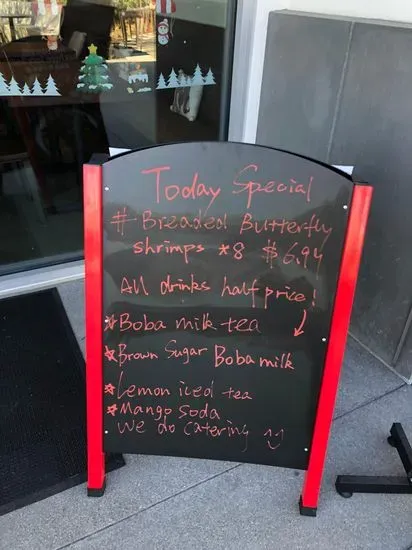 Today Special
# Breaded Butterfly
shrimps *8 $6.94
All drinks half price!
☆Boba milk tea
☆Brown Sugar Boba milk
☆Lemon iced tea
☆Mango soda
We do catering ☺